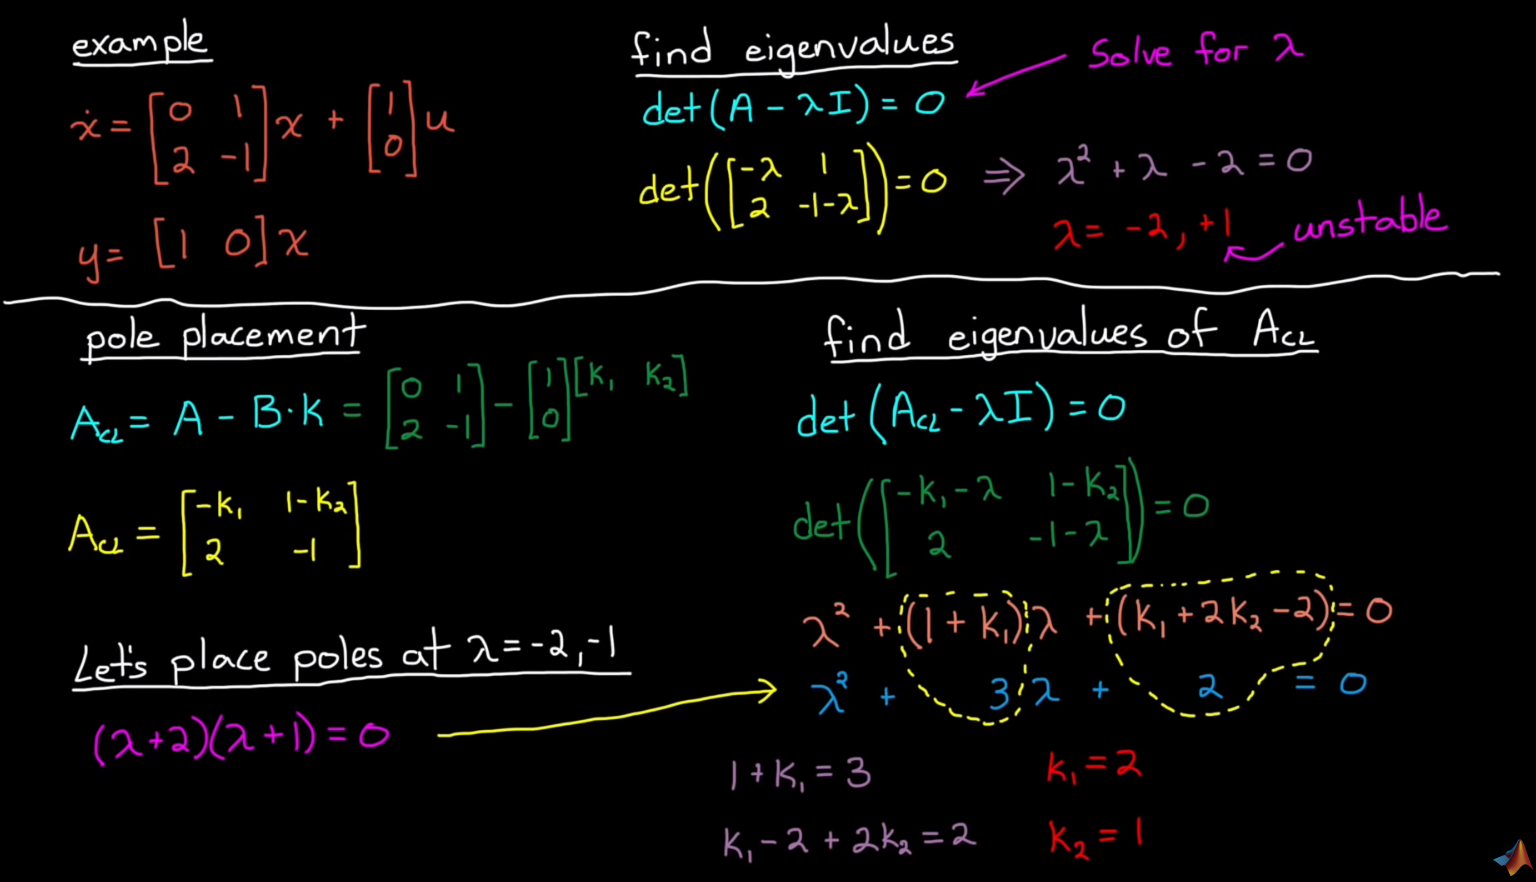 example
ẋ = [0 1; 2 -1] x + [1; 0] u
y = [1 0] x
find eigenvalues
Solve for λ
det(A - λI) = 0
det([-λ 1; 2 -1-λ]) = 0 ⇒ λ² + λ - 2 = 0
λ = -2, +1
unstable
pole placement
A_CL = A - B·K = [0 1; 2 -1] - [1; 0][k₁ k₂]
A_CL = [-k₁ 1-k₂; 2 -1]
Let's place poles at λ=-2,-1
(λ+2)(λ+1) = 0
find eigenvalues of A_CL
det(A_CL - λI) = 0
det([-k₁-λ 1-k₂; 2 -1-λ]) = 0
λ² + (1 + k₁)λ + (k₁ + 2k₂ - 2) = 0
λ² + 3λ + 2 = 0
1 + k₁ = 3
k₁ = 2
k₁ - 2 + 2k₂ = 2
k₂ = 1